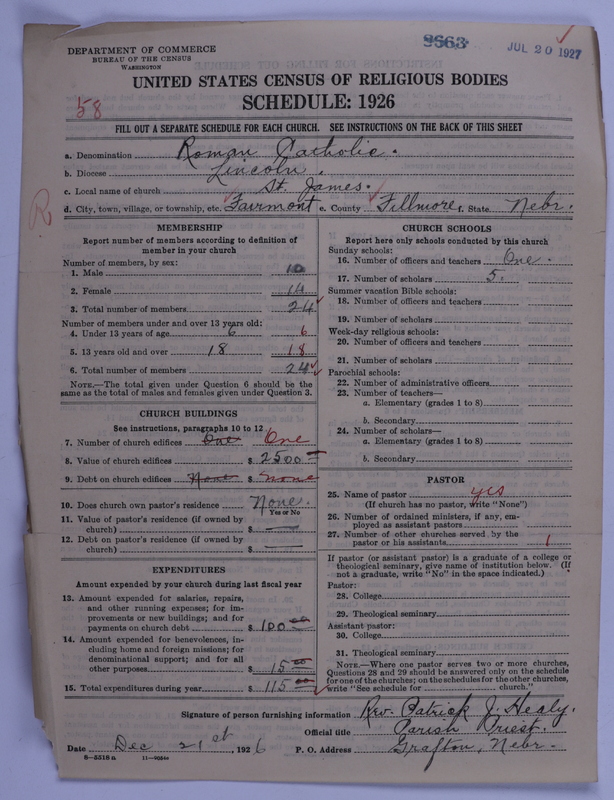 DEPARTMENT OF COMMERCE
BUREAU OF THE CENSUS
WASHINGTON
9663
JUL 20 1927
UNITED STATES CENSUS OF RELIGIOUS BODIES
SCHEDULE: 1926
58
FILL OUT A SEPARATE SCHEDULE FOR EACH CHURCH. SEE INSTRUCTIONS ON THE BACK OF THIS SHEET
a. Denomination Roman Catholic.
b. Diocese Lincoln.
c. Local name of church St. James.
R
d. City, town, village, or township, etc. Fairmont e. County Fillmore f. State Nebr.
MEMBERSHIP
Report number of members according to definition of member in your church
Number of members, by sex:
1. Male 10
2. Female 14
3. Total number of members 24
Number of members under and over 13 years old:
4. Under 13 years of age 6 6
5. 13 years old and over 18 18
6. Total number of members 24
NOTE.—The total given under Question 6 should be the same as the total of males and females given under Question 3.
CHURCH BUILDINGS
See instructions, paragraphs 10 to 12
7. Number of church edifices One One
8. Value of church edifices $ 2500
9. Debt on church edifices None $ none
10. Does church own pastor's residence None.
Yes or No
11. Value of pastor's residence (if owned by church) $
12. Debt on pastor's residence (if owned by church) $
EXPENDITURES
Amount expended by your church during last fiscal year
13. Amount expended for salaries, repairs, and other running expenses; for improvements or new buildings; and for payments on church debt $ 100.00
14. Amount expended for benevolences, including home and foreign missions; for denominational support; and for all other purposes $ 15.00
15. Total expenditures during year $ 115.00
CHURCH SCHOOLS
Report here only schools conducted by this church
Sunday schools:
16. Number of officers and teachers One.
17. Number of scholars 5.
Summer vacation Bible schools:
18. Number of officers and teachers
19. Number of scholars
Week-day religious schools:
20. Number of officers and teachers
21. Number of scholars
Parochial schools:
22. Number of administrative officers
23. Number of teachers—
a. Elementary (grades 1 to 8)
b. Secondary
24. Number of scholars—
a. Elementary (grades 1 to 8)
b. Secondary
PASTOR
25. Name of pastor yes
(If church has no pastor, write "None")
26. Number of ordained ministers, if any, employed as assistant pastors
27. Number of other churches served by the pastor or his assistants 1
If pastor (or assistant pastor) is a graduate of a college or theological seminary, give name of institution below. (If not a graduate, write "No" in the space indicated.)
Pastor:
28. College
29. Theological seminary
Assistant pastor:
30. College
31. Theological seminary
NOTE.—Where one pastor serves two or more churches, Questions 28 and 29 should be answered only on the schedule for one of the churches; on the schedules for the other churches, write "See schedule for church."
Signature of person furnishing information Rev. Patrick J. Healy.
Official title Parish Priest.
Date Dec 21st, 1926 P. O. Address Grafton, Nebr.